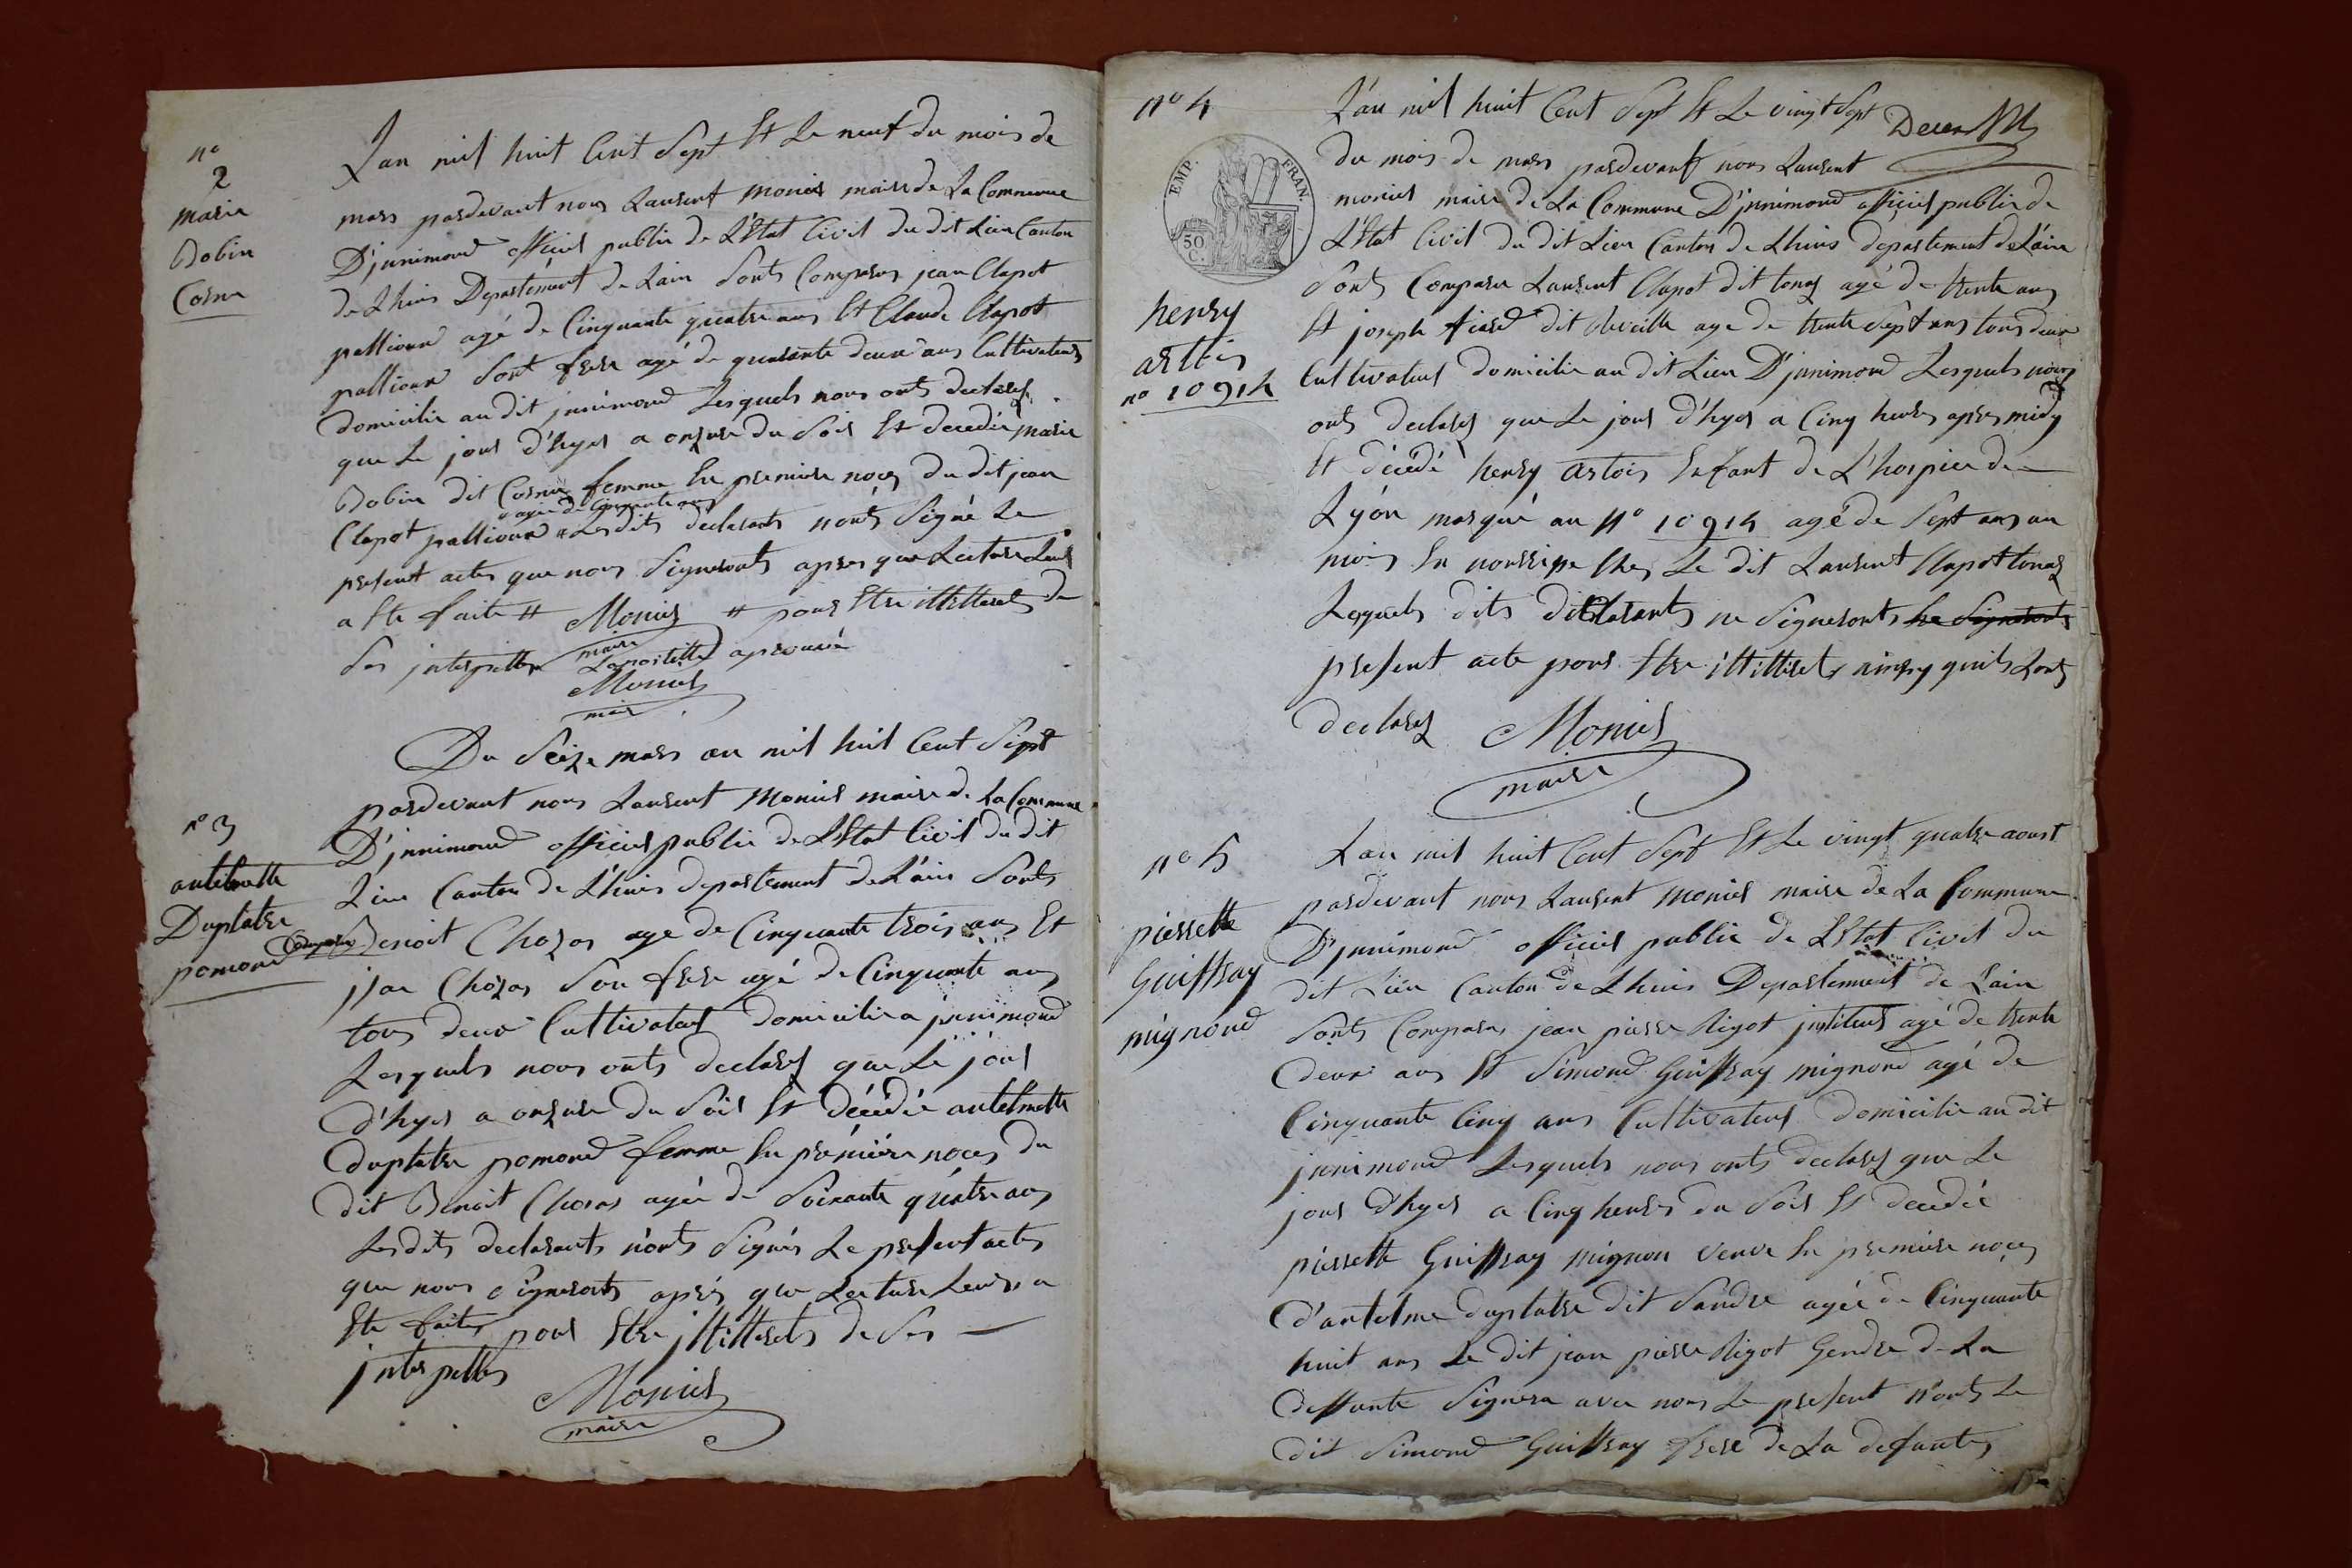 n°
2
marie
Bobin
Cosne
Lan mil huit Cent Sept Et Le neuf du mois de
mars pardevant nous Laurent Monier maire de La Commune
D'jnnimond officier public de L'Etat Civil du dit Lieu Canton
de Lhuis Departement de Lain Sonts Comparus jean Clapot
pallioux agé de Cinquante quatre ans Et Claude Clapot
pallioux Sont frere agé de quarante deux ans Cultivateurs
domicilie au dit jnnimond Lesquels nous onts declarez
que Le jour d'hyer a onzure du Soir Et decedée marie
Bobin dit Cosne femme En premiere noces du dit jean
agée de Cinquante ans
Clapot pallioux # Les dits declarants n'onts Signé Le
present actes que nous Signeronts apres que Lecture Leur
a Ete faite # Monier # pour Etre illitterets de
Ses jnterpelles maire Lapostille aprouvé
Monier
maire
n° 3
antelmette
Duplatre
pomond
Du Seize mars an mil huit Cent Sept
pardevant nous Laurent Monier maire de La Commune
D'jnnimond officier public de L'Etat Civil du dit
Lieu Canton de L'huis departement de L'ain Sonts
Comparus Benoit Chozas age de Cinquante trois ans Et
jean Chozas Son frere agé de Cinquante ans
tous deux Cultivateur domicilie a jnnimond
Lesquels nous onts declarez que Le jour
d'hyer a onzure du Soir Et décédée antelmette
duplatre pomond femme En premiere noces du
dit Benoit Chozas agée de Soixante quatre ans
Les dits declarants n'onts Signés Le present actes
que nous Signeronts aprés que Lecture Leurs a
Ete faites pour Etre jllitterets de Ses
jnterpelles
Monier
maire
n° 4
EMP. FRAN.
50
C.
henry
artois
n° 10914
L'an mil huit Cent Sept Et Le vingt Sept
du mois de mars pardevant nous Laurent
monier maire de La Commune D'jnnimond officier public de
L'Etat Civil du dit Lieu Canton de Lhuis departement de L'ain
Sonts Comparu Laurent Clapot dit tonaz agé de trente ans
Et joseph dit age de trente Sept ans tous deux
Cultivateur domicilie au dit Lieu D'jnnimond Lesquels nous
onts declarez que Le jour d'hyer a Cinq heures apres midy
Et décédé henry artois Enfant de L'hospice de
Lyon marqué au N° 10914 agé de Sept ans un
mois En nourrisse Chez Le dit Laurent Clapot tonaz
Lesquels dits declarants ne Signeronts ne Signeronts
present acte pour Etre illitterets ainsy quils Lonts
declarez Monier
maire
n° 5
pierrette
Guiffray
mignond
Lan mil huit Cent Sept Et Le vingt quatre aoust
pardevant nous Laurent Monier maire de La Commune
D'jnnimond officier public de L'Etat Civil du
dit Lieu Canton de Lhuis Departement de Lain
Sonts Comparus jean pierre Rigot jnstituteur agé de trente
deux ans Et Simond Guiffray mignond agé de
Cinquante Cinq ans Cultivateur domicilie au dit
jnnimond Lesquels nous onts declarez que Le
jour d'hyer a Cinq heures du Soir Et decedée
pierrette Guiffray mignon veuve En premiere noces
d'antelme duplatre dit Sandre agée de Cinquante
huit ans Le dit jean pierre Rigot Gendre de La
deffunte Signera avec nous Le present N'onts Le
dit Simond Guiffray frere de La defuntes